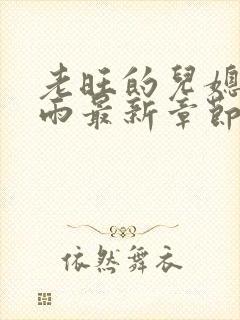 老旺的兒媳
雨最新章節
依然舞衣